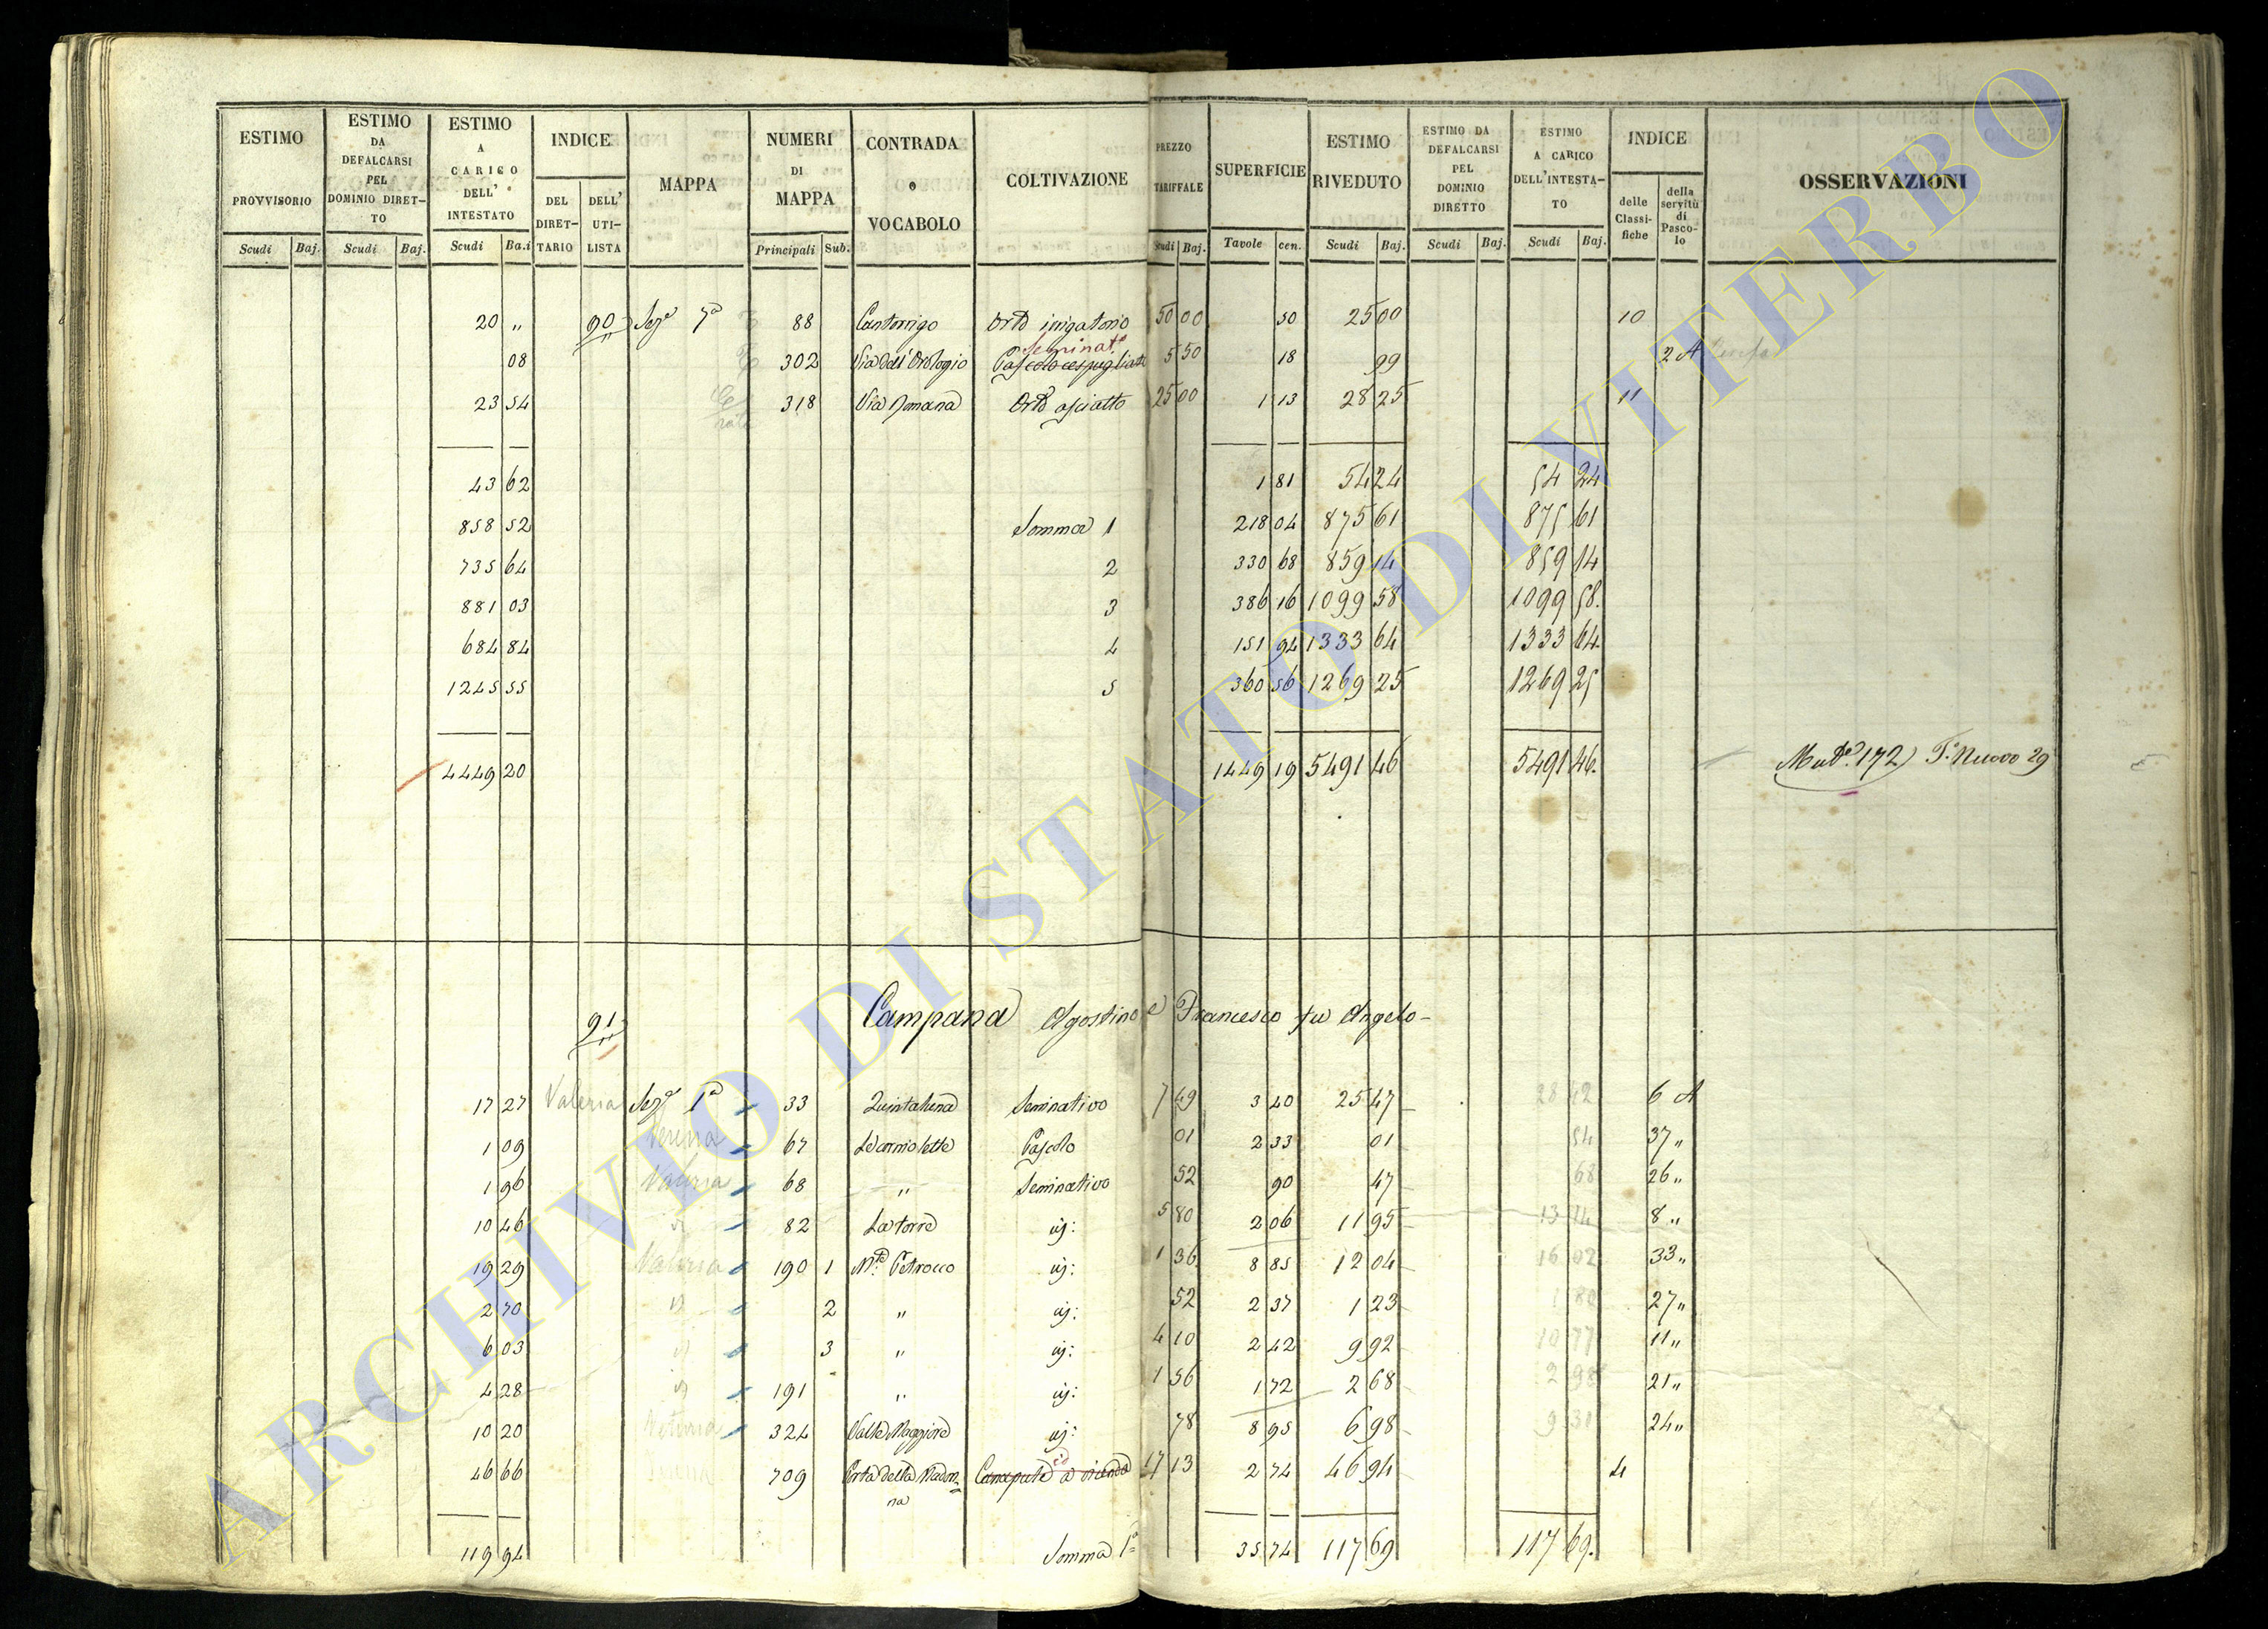 ESTIMO PROVVISORIO | ESTIMO DA DEFALCARSI PEL DOMINIO DIRETTO | ESTIMO A CARICO DELL' INTESTATO | INDICE | MAPPA | NUMERI DI MAPPA | CONTRADA O VOCABOLO | COLTIVAZIONE | PREZZO TARIFFALE | SUPERFICIE | ESTIMO RIVEDUTO | ESTIMO DA DEFALCARSI PEL DOMINIO DIRETTO | ESTIMO A CARICO DELL'INTESTATO | INDICE | OSSERVAZIONI
Scudi Baj. | Scudi Baj. | Scudi Ba.i | DEL DIRETTARIO | DELL' UTILISTA | Principali Sub. | Scudi Baj. | Tavole cen. | Scudi Baj. | Scudi Baj. | Scudi Baj. | delle Classifiche | della servitù di Pascolo
20 " 90 Sez.e 7a 88 Cantorrigo Orto irrigatorio 50 00 50 25 00 10
08 302 Via dell' Orologio Seminat.o Pascolo cespugliato 5 50 18 99 2 A
23 54 318 Via Romana Orto asciatto 25 00 1 13 28 25 11
43 62 1 81 54 24 54 24
858 52 Somma 1 218 04 875 61 875 61
735 64 2 330 68 859 14 859 14
881 03 3 386 16 1099 58 1099 58.
684 84 4 151 94 1333 64 1333 64
1245 55 5 360 56 1269 25 1269 25
4449 20 1449 19 5491 46 5491 46. Mut.e 172 T. Nuovo 29
91 Campana Agostino e Francesco fu Angelo
17 27 Valeria Sez.e 1a 33 Quintaluna Seminativo 7 49 3 40 25 47 28 42 6 A
1 09 67 Le cormolette Pascolo 01 2 33 01 54 37 "
1 96 Valeria 68 " Seminativo 52 90 47 68 26 "
10 46 82 La torre id: 5 80 2 06 11 95 13 14 8 "
19 29 Valeria 190 1 M.te Petrocco id: 1 36 8 85 12 04 16 02 33 "
2 70 2 " id: 52 2 37 1 23 27 "
6 03 3 " id: 4 10 2 42 9 92 10 77 11 "
4 28 191 " id: 1 56 1 72 2 68 2 98 21 "
10 20 324 Valle Maggiore id: 78 8 95 6 98 9 31 24 "
46 66 709 Porta della Madonna Canapule 17 13 2 74 46 94 4
119 94 Somma 1a 35 74 117 69 117 69.
ARCHIVIO DI STATO DI VITERBO